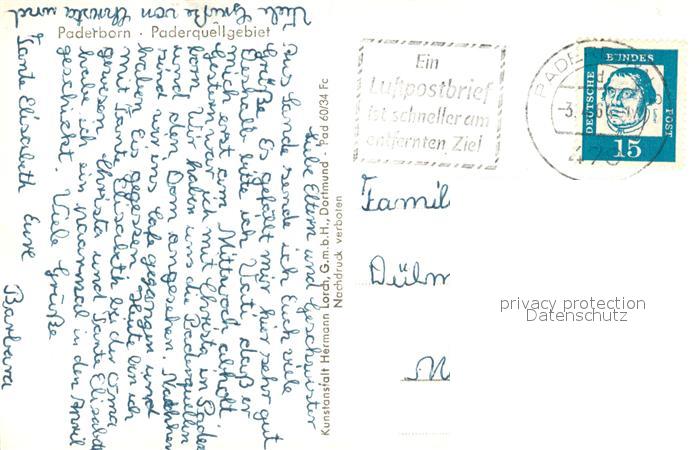 Paderborn · Paderquellgebiet
Liebe Eltern und Geschwister
Aus Sende sende ich Euch viele
Grüße. Es gefällt mir hier sehr gut
Deshalb bitte ich Vati, daß er
mich erst am Mittwoch abholt
Gestern war ich mit Christa in Pader
born. Wir haben uns die Paderquellen
und den Dom angesehen. Nachher
sind wir ins Cafe gegangen und
haben Eis gegessen. Heute bin ich
mit Tante Elisabeth bei der Oma
gewesen. Christa und Tante Elisabeth
habe ich ein paarmal in den April
geschickt. Viele Grüße
Eure Barbara
Viele Grüße von Christa und
Tante Elisabeth
Kunstanstalt Hermann Lorch, G.m.b.H., Dortmund · Pad 60/34 Fc
Nachdruck verboten
Ein
Luftpostbrief
ist schneller am
entfernten Ziel
PADE
-3.
479
DEUTSCHE
BUNDES
POST
15
Famil
Dülm
privacy protection
Datenschutz